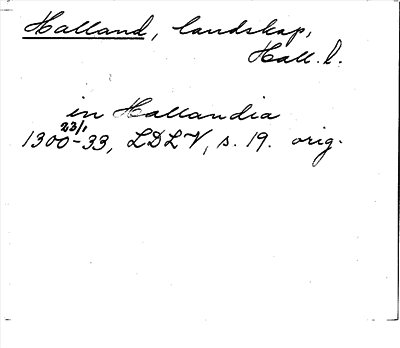 Halland, landskap,
Hall. l.
in Hallandia
23/1
1300-33, LDLV, s. 19. orig.